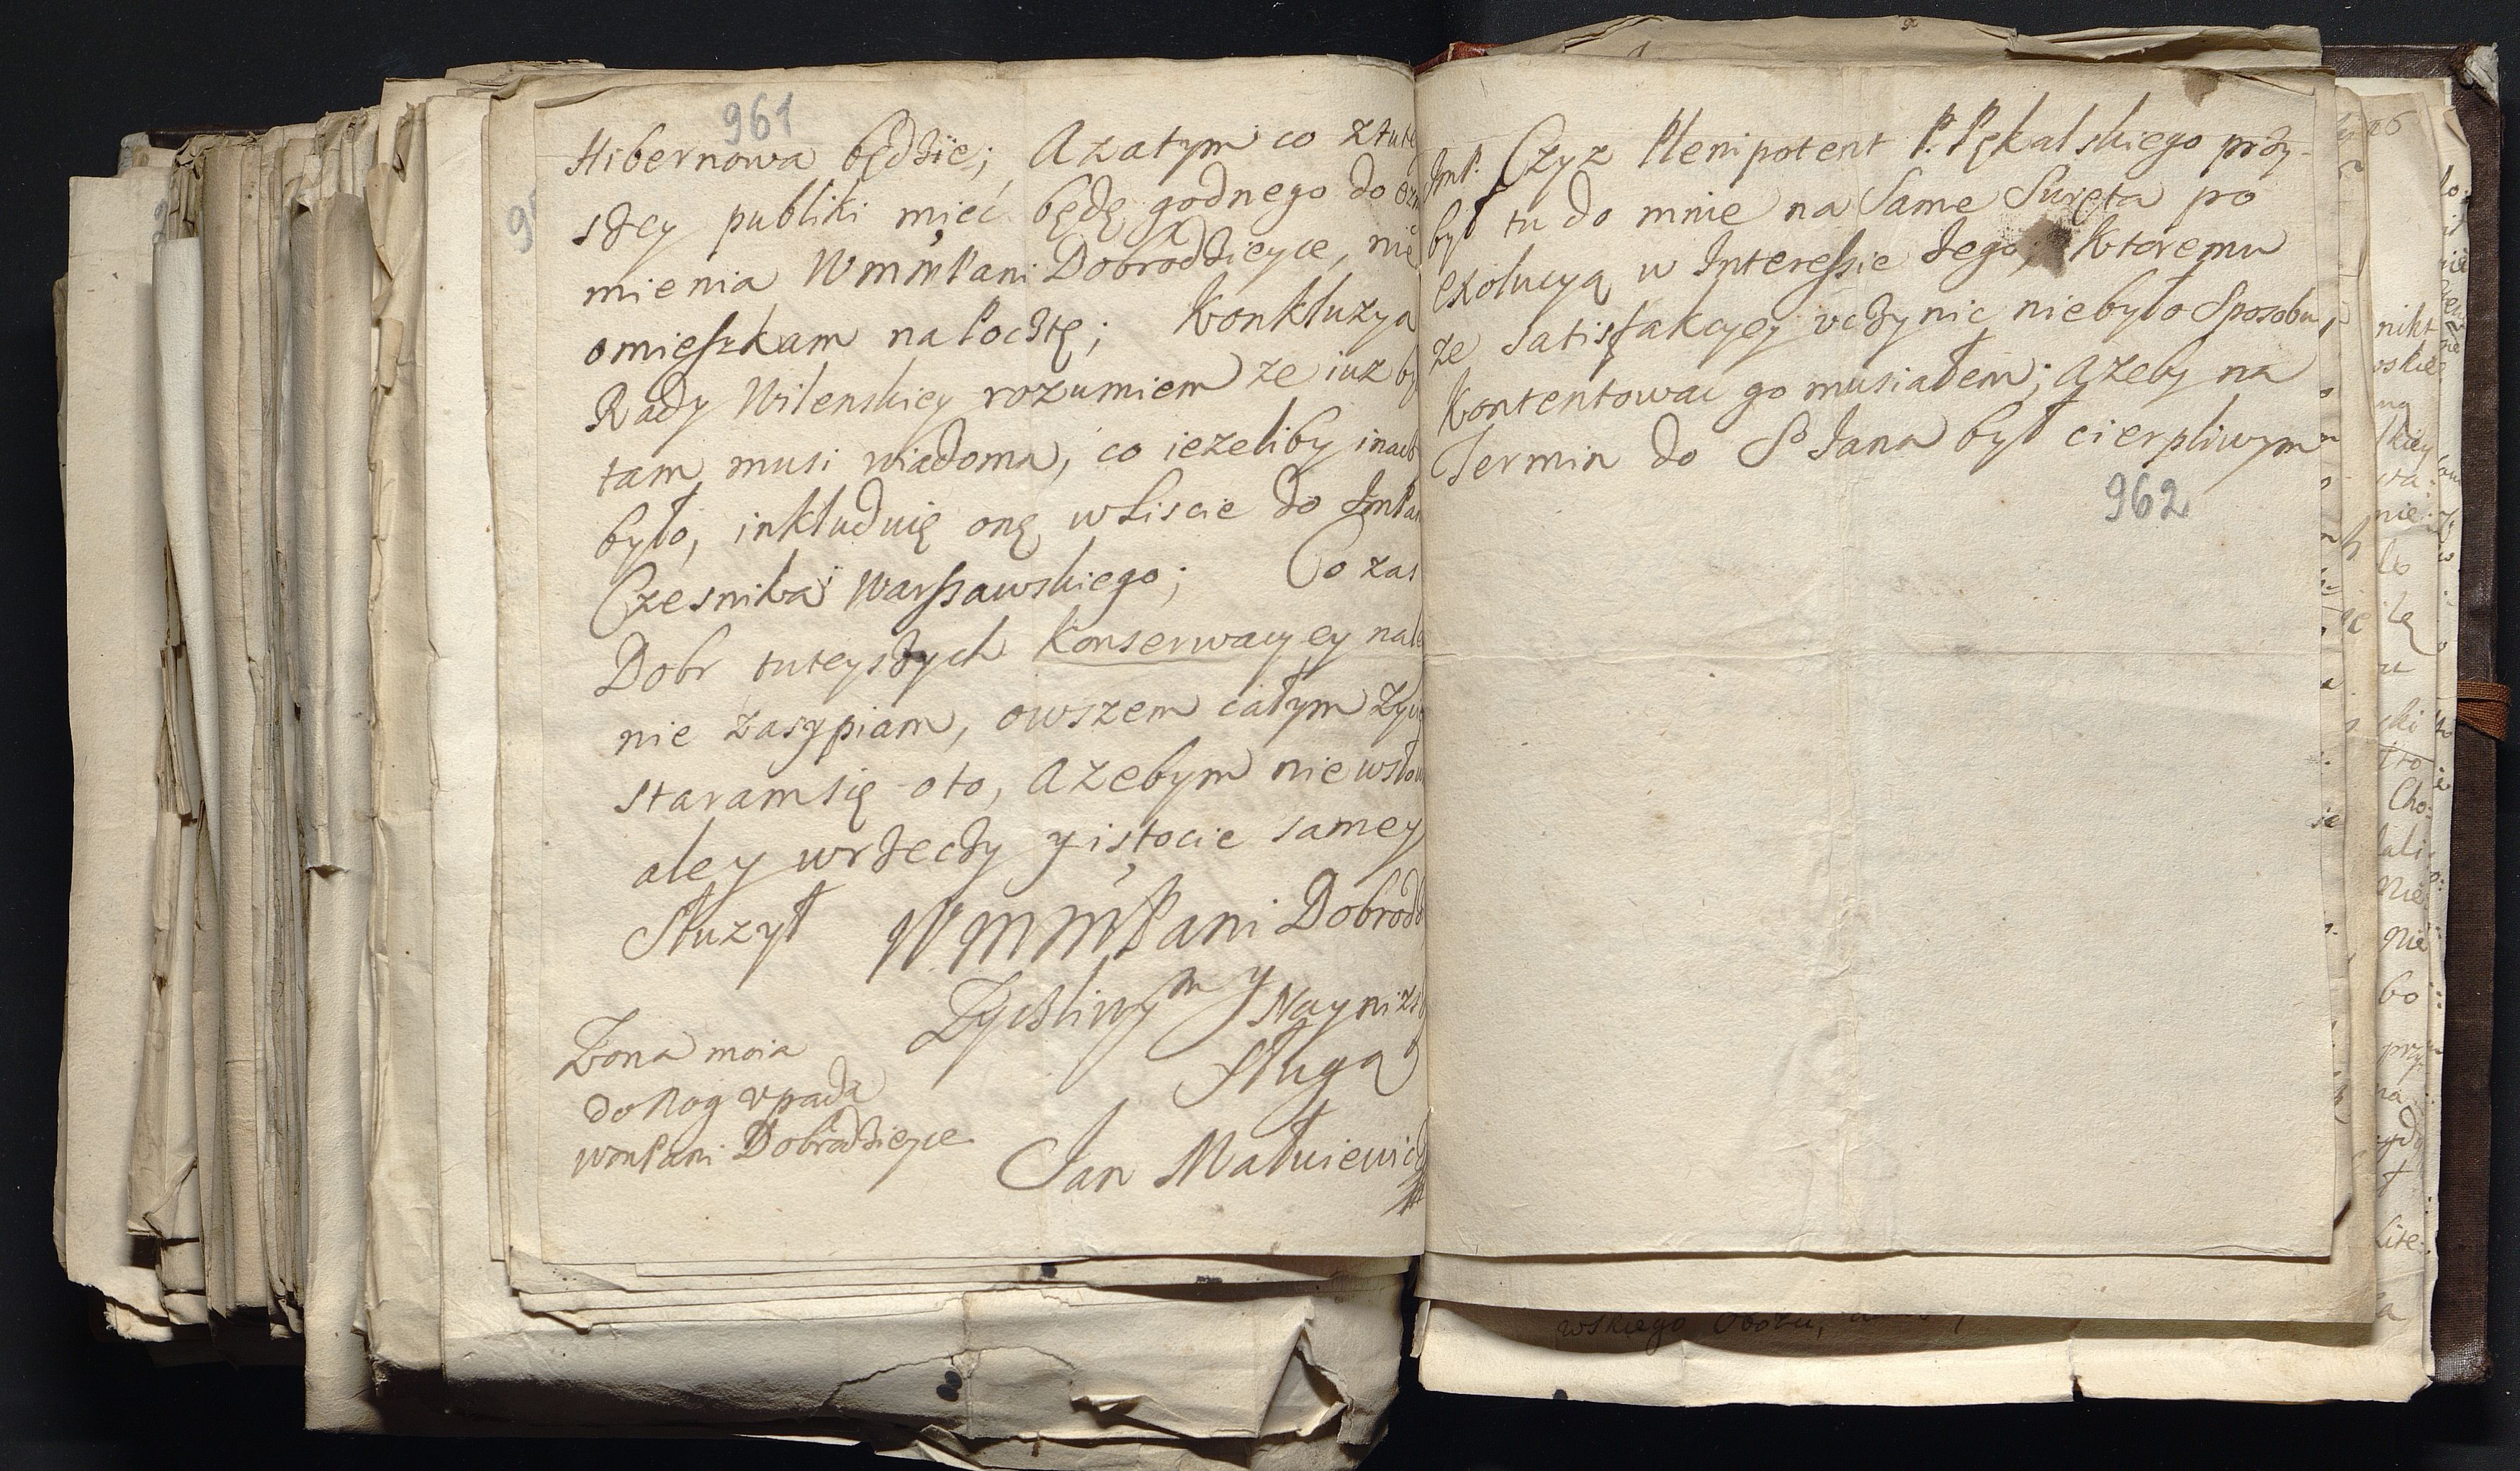 961
Hibernowa będzie; Azatym co ztute
szey publiki mieć będę godnego do ozn
mienia WmmPani Dobrodzieyce, nie
omieszkam na Pocztę; Konkluzya
Rady Wilenskiey rozumiem ze iuz by
tam musi wiadoma, co iezeliby inacz
było, inkluduię onę w Liscie do JmPan
Czesnika Warszawskiego; Co zas
Dobr tuteyszych Konserwacyey nale
nie zasypiam, owszem całym życ
staram się oto, Azebym nie wsłow
aley wrzeczy y istocie samey
Służył WmmPani Dobrodz
Zyczliwym y Nayniższ
Sługa
Zona moia
do Nog upada
wmPani Dobrodzieyce
Jan Matuiewicz
JmP. Czyz Plenipotent P. Pękalskiego przy-
był tu do mnie na Same Swięta po
exolucyą w Interessie Jego, Kteremu
ze satisfakcyey uczynic niebyło Sposobu
Kontentowac go musiałem; Azeby na
Termin do So Jana był cierpliwym
962